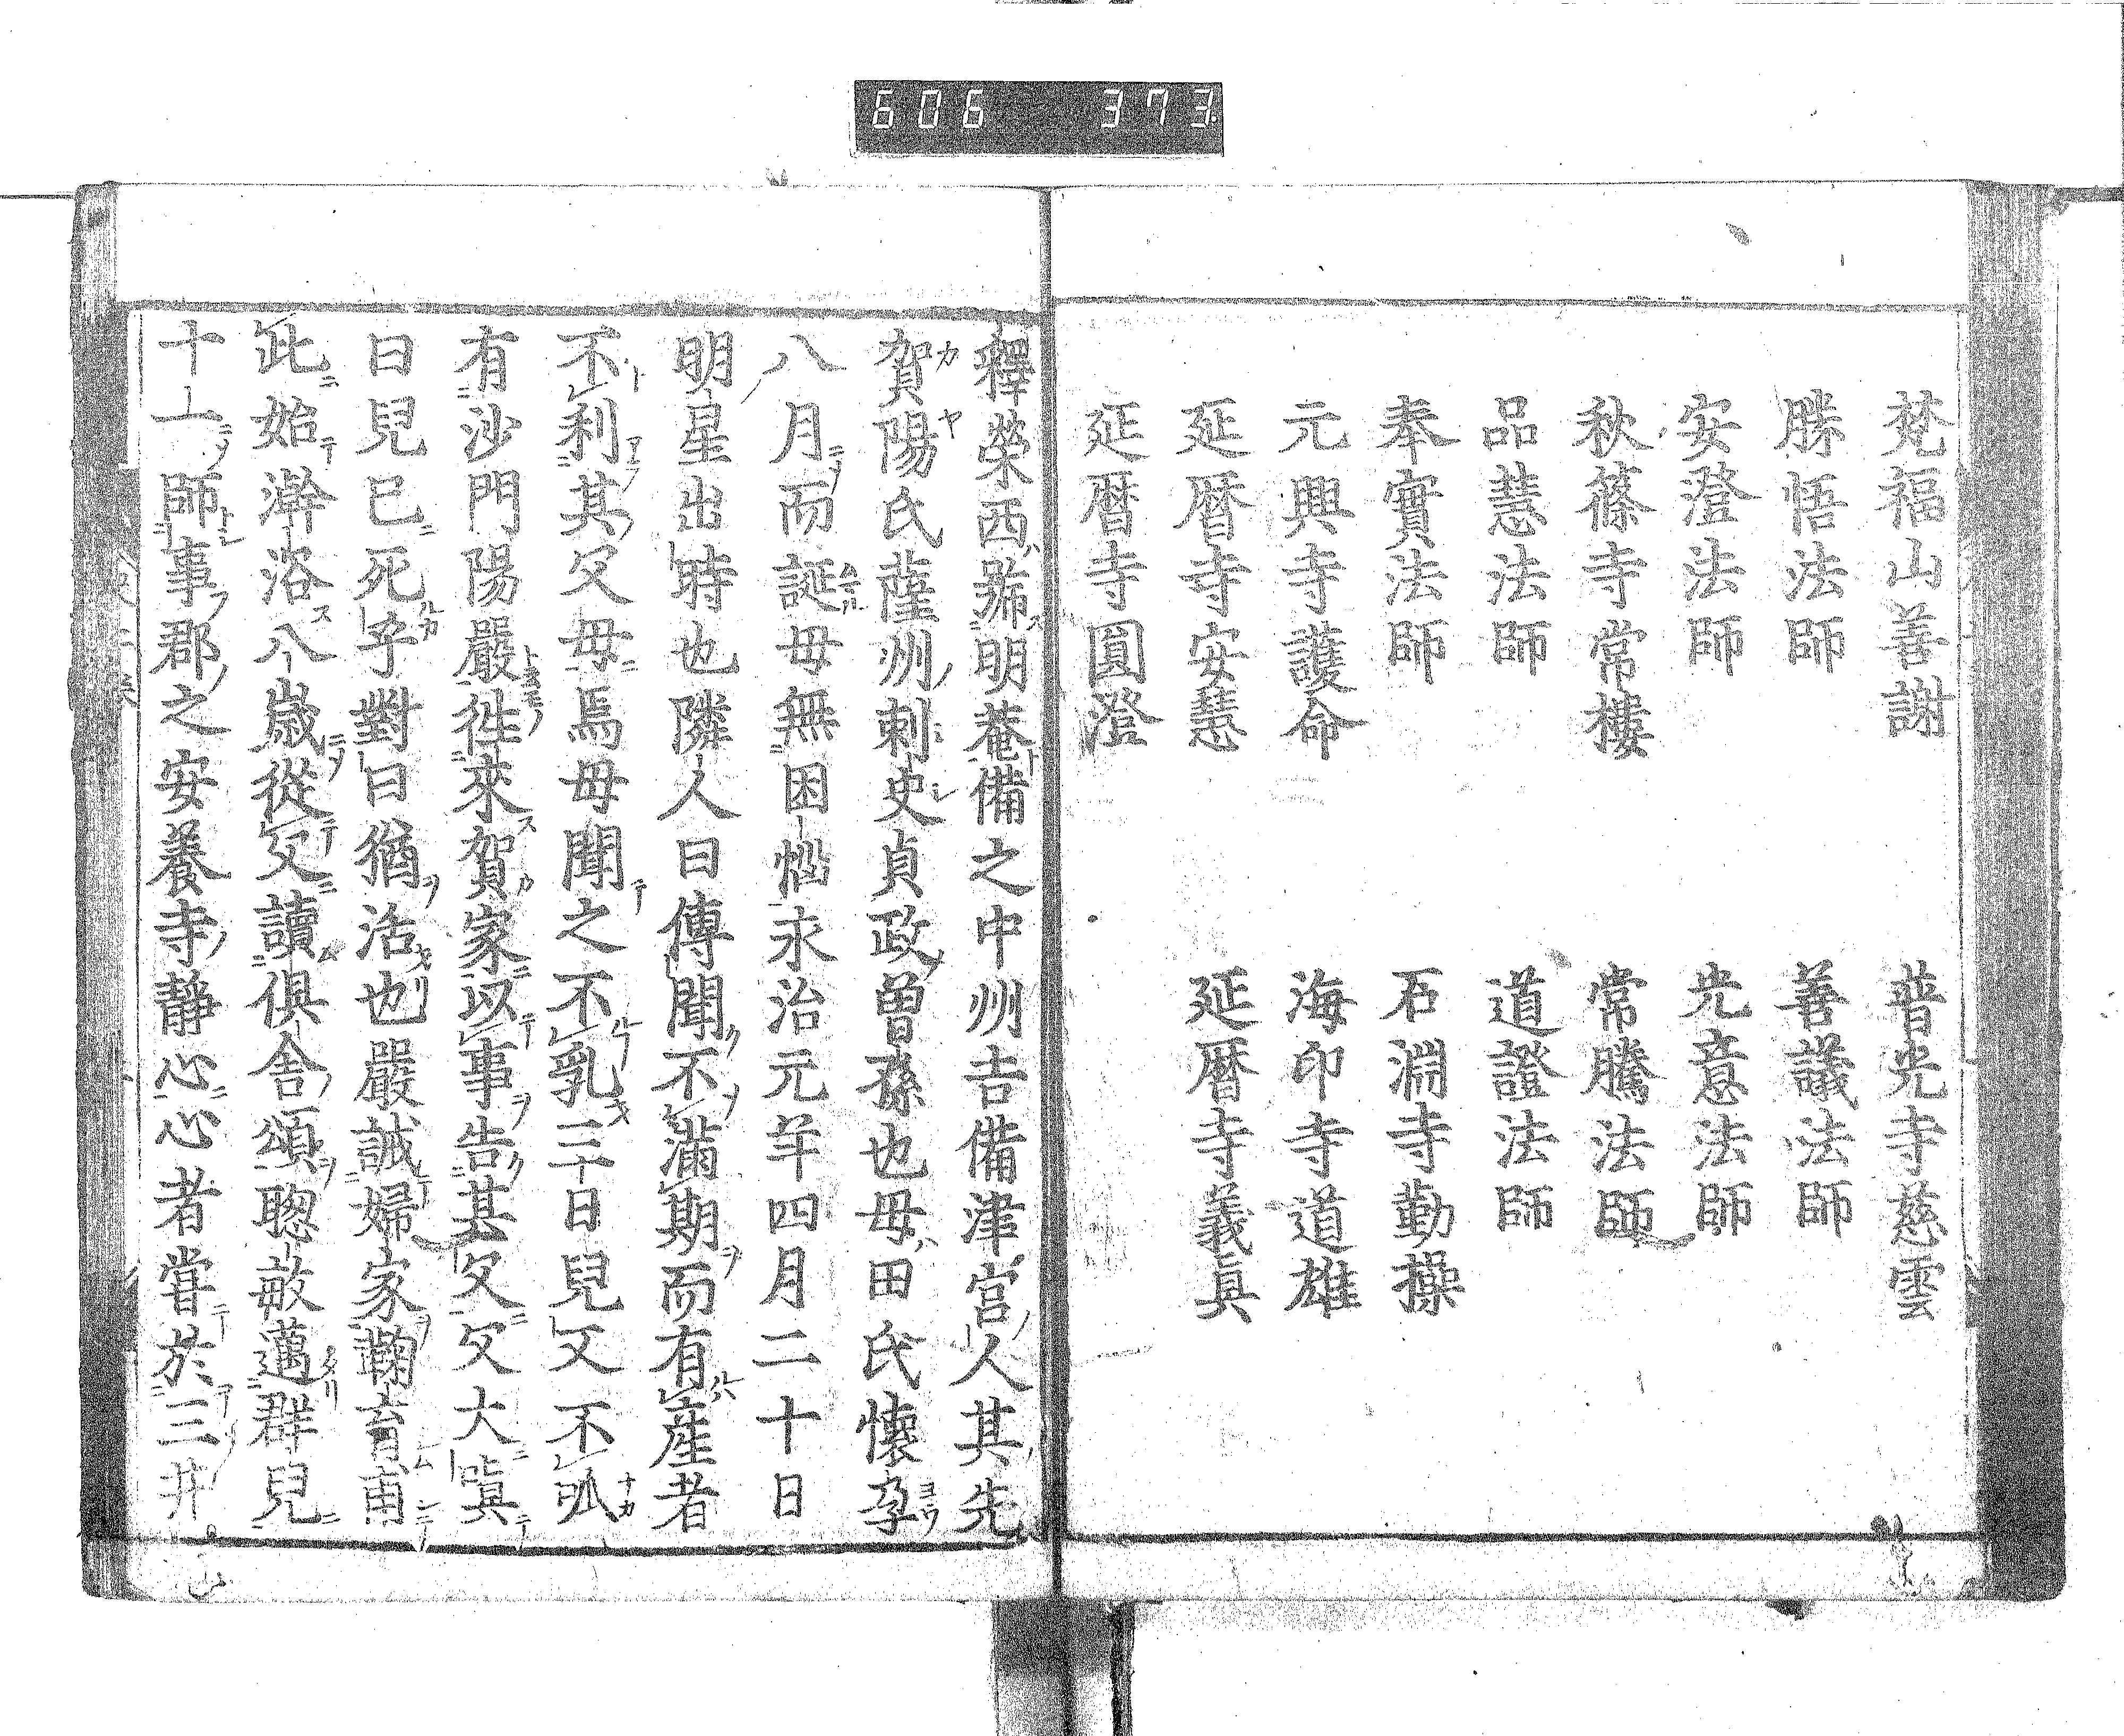 606 373
梵福山善謝 普光寺慈雲
勝悟法師 善議法師
安澄法師 光意法師
秋篠寺常樓 常騰法師
品慧法師 道證法師
奉實法師 石淵寺勤操
元興寺護命 海印寺道雄
延曆寺安慧 延曆寺義眞
延曆寺圓澄
釋榮西號明菴備之中州吉備津宮人其先
賀陽氏薩州刺史貞政曾孫也母田氏懷孕
八月而誕母無困惱永治元年四月二十日
明星出時也隣人曰傳聞不滿期而有產者
不利其父母焉母聞之不乳三日兒又不呱
有沙門陽嚴徃來賀家以事告其父父大嗔
曰兒已死乎對曰猶活也嚴誡婦家鞠育甫
此始澣浴八歲從父讀俱舍頌聰敏邁群兒
十一師事郡之安養寺靜心心者嘗於三井